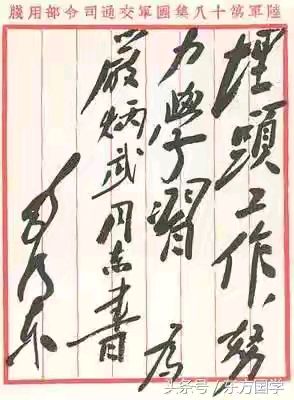 陸軍第十八集團軍交通司令部用牋
埋頭工作、努
力學習 為
嚴炳武同志書
毛澤東
头条号/东方国学